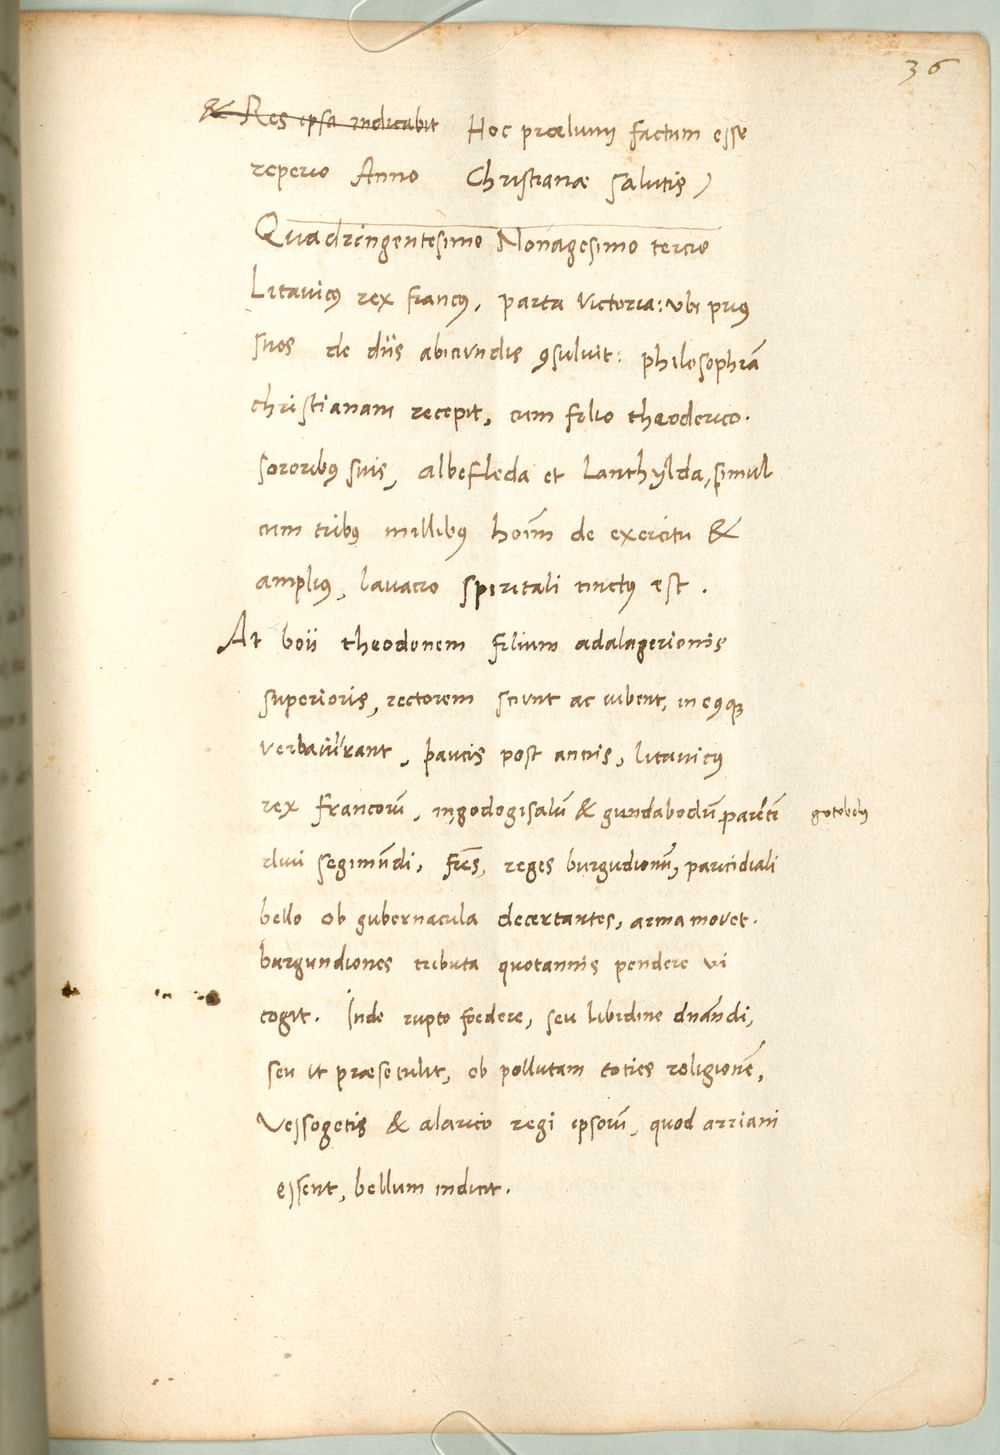 36
& Res ipsa indicabit Hoc prœlium factum esse
reperio Anno Christianæ salutis)
Quadringentesimo Nonagesimo tercio
Litavicꝰ rex francꝰ, parta victoria: ubi priꝰ
suos de diis abiciundis ꝯsuluit: philosophiā
christianam recepit, cum filio theoderico.
sororibꝰ suis, albefleda et Lanthylda, simul
cum tribꝰ millibꝰ hoīm de exercitu &
ampliꝰ, lavacro spiritali tinctꝰ est.
At boii theodonem filium adalagerionis
superioris, rectorem sciunt ac iubent, in eꝰqꝫ
verba iurant, paucis post annis, litavicꝰ
rex francorū, in godogisalū & gundabodū parētē gotobldꝰ
divi segimūdi, frēs, reges burgūdionū, paricidiali
bello ob gubernacula decertantes, arma movet.
burgundiones tributa quotannis pendere vi
cogit. Inde rupto fœdere, seu libidine dnāndi,
seu ut præ se tulit, ob pollutam toties religionē,
Vessogetis & alarico regi ipsorū, quod arriani
essent, bellum indicit.